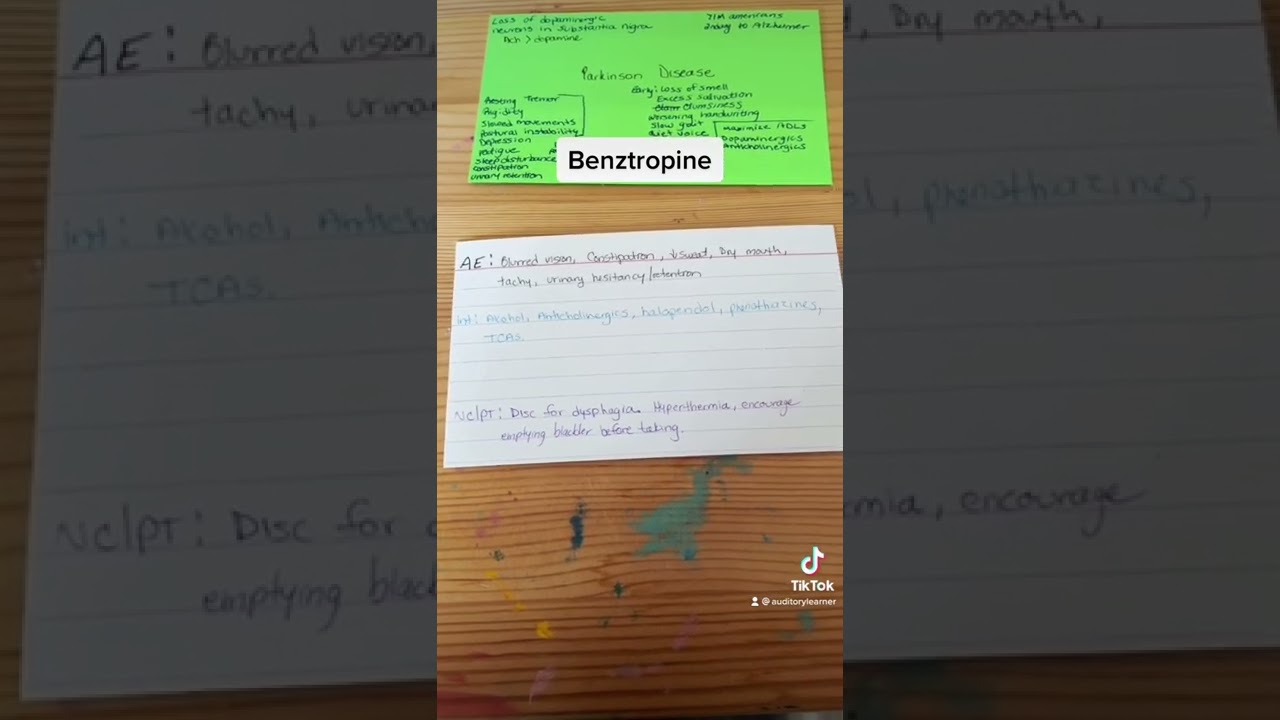 Loss of dopaminergic
neurons in substantia nigra
Ach > dopamine
71M americans
2ndary to Alzheimer
Parkinson Disease
Resting Tremor
Rigidity
Slowed movements
Postural instability
Depression
Fatigue
Sleep disturbance
Constipation
urinary retention
Early: Loss of smell
Excess salivation
Clumsiness
Worsening handwriting
Slow gait
Quiet voice
Maximize ADLs
Dopaminergics
Anticholinergics
Benztropine
AE: Blurred vision, Constipation, ↓sweat, Dry mouth,
tachy, urinary hesitancy/retention
Int: Alcohol, Anticholinergics, haloperidol, phenothiazines,
TCAs.
NC/PT: Disc for dysphagia. Hyperthermia, encourage
emptying bladder before taking.
TikTok
@auditorylearner
AE: Blurred vision,
tachy, urinar
Int: Alcohol, Antich
TCAs.
NC/PT: Disc for
emptying blad
Dry mouth,
ol, phenothiazines,
mia, encourage